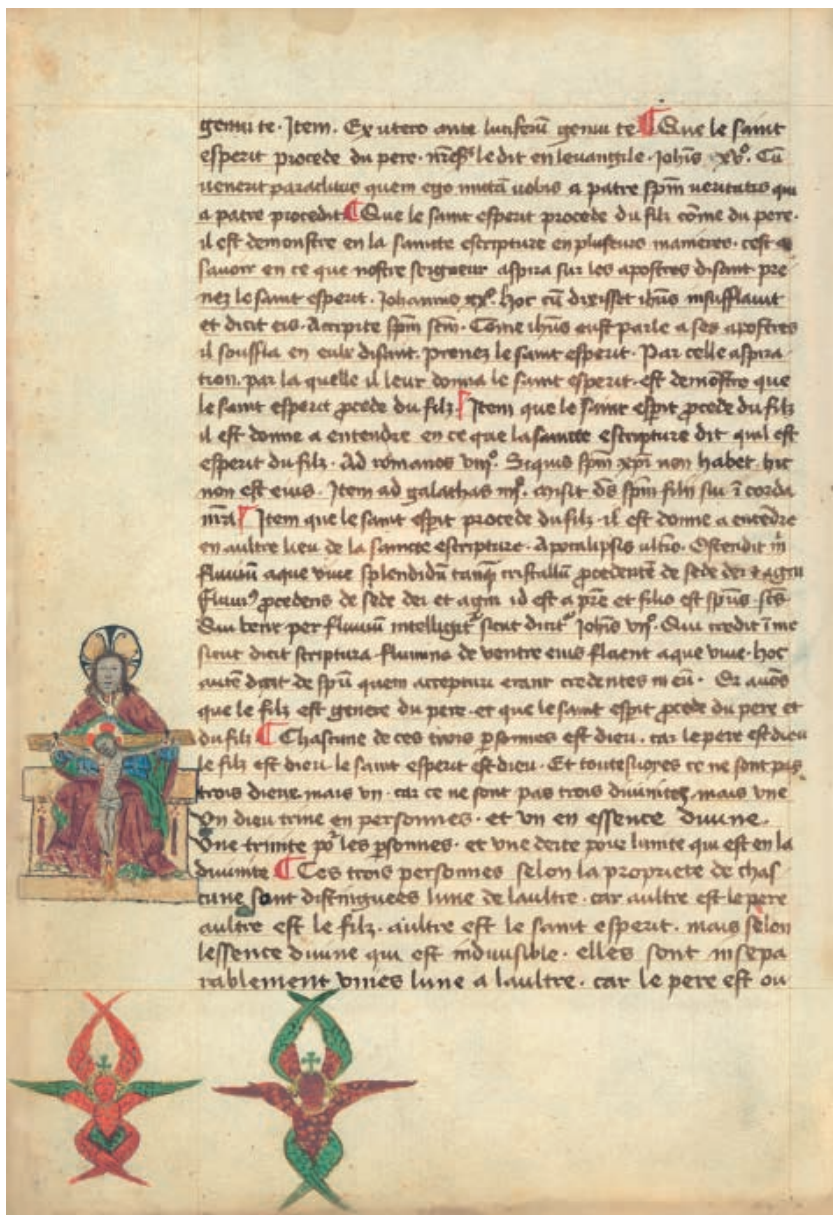 genui te. Item. Ex utero ante luciferū genui te ¶ Que le saint
esperit procede du pere. nr̄es̄ le dit en levangile. Joh̄is xvº. Cū
venerit paraclitus quem ego mittā vobis a patre sp̄m veritatis qui
a patre procedit ¶ Que le saint esperit procede du filz cōme du pere.
il est demonstre en la saincte escripture en plusieurs manieres. cest a
savoir en ce que nostre seigneur aspira sur les apostres disant pre
nez le saint esperit. Johannis xxº. hoc cū dixisset ih̄us insufflavit
et dicit eis. Accipite sp̄m sc̄m. Come ih̄us eust parle a ses apostres
il souffla en eulx disant. Prenez le saint esperit. Par celle aspira
tion. par la quelle il leur donna le saint esperit. est demōstre que
le saint esperit p̄cede du filz ¶ Item que le saint esp̄it p̄cede du filz
il est donne a entendre en ce que la saincte escripture dit quil est
esperit du filz. Ad romanos viijº. Siquis sp̄m xp̄i non habet. hic
non est eius. Item ad galathas iiijº. misit d̄s sp̄m filii sui ī corda
n̄ra ¶ Item que le saint esp̄it procede du filz. il est donne a entēdre
en aultre lieu de la saincte escripture. Apocalipsis ultīo. Ostendit m̄
fluviū aque vive splendidū tanq̄ cristallū p̄cedentē de sede dei et agni
Fluviꝰ p̄cedens de sede dei et agni id est a p̄re et filio est sp̄us sc̄s
Qui bene per fluviū intelligit̄ sicut dicit̄ Joh̄is vijº. Qui credit ī me
sicut dicit scriptura flumina de ventre eius fluent aque vive. hoc
autē dixit de sp̄u quem accepturi erant credentes in eū. Or avōs
que le filz est genere du pere. et que le saint esp̄it p̄cede du pere et
du filz ¶ Chascune de ces trois p̄sonnes est dieu. car le pere est dieu
le filz est dieu. le saint esperit est dieu. Et toutesvoies ce ne sont pas
trois dieux mais un. car ce ne sont pas trois divinitez mais une
Un dieu trine en personnes. et un en essence divine.
Une trinite po᷑ les p̄sonnes. et une deite pour lunite qui est en la
divinite ¶ Ces trois personnes selon la propriete de chas
cune sont distinguees lune de laultre. car aultre est le pere
aultre est le filz. aultre est le saint esperit. mais selon
lessence divine qui est indivisible. elles sont insepa
rablement unies lune a laultre. car le pere est ou